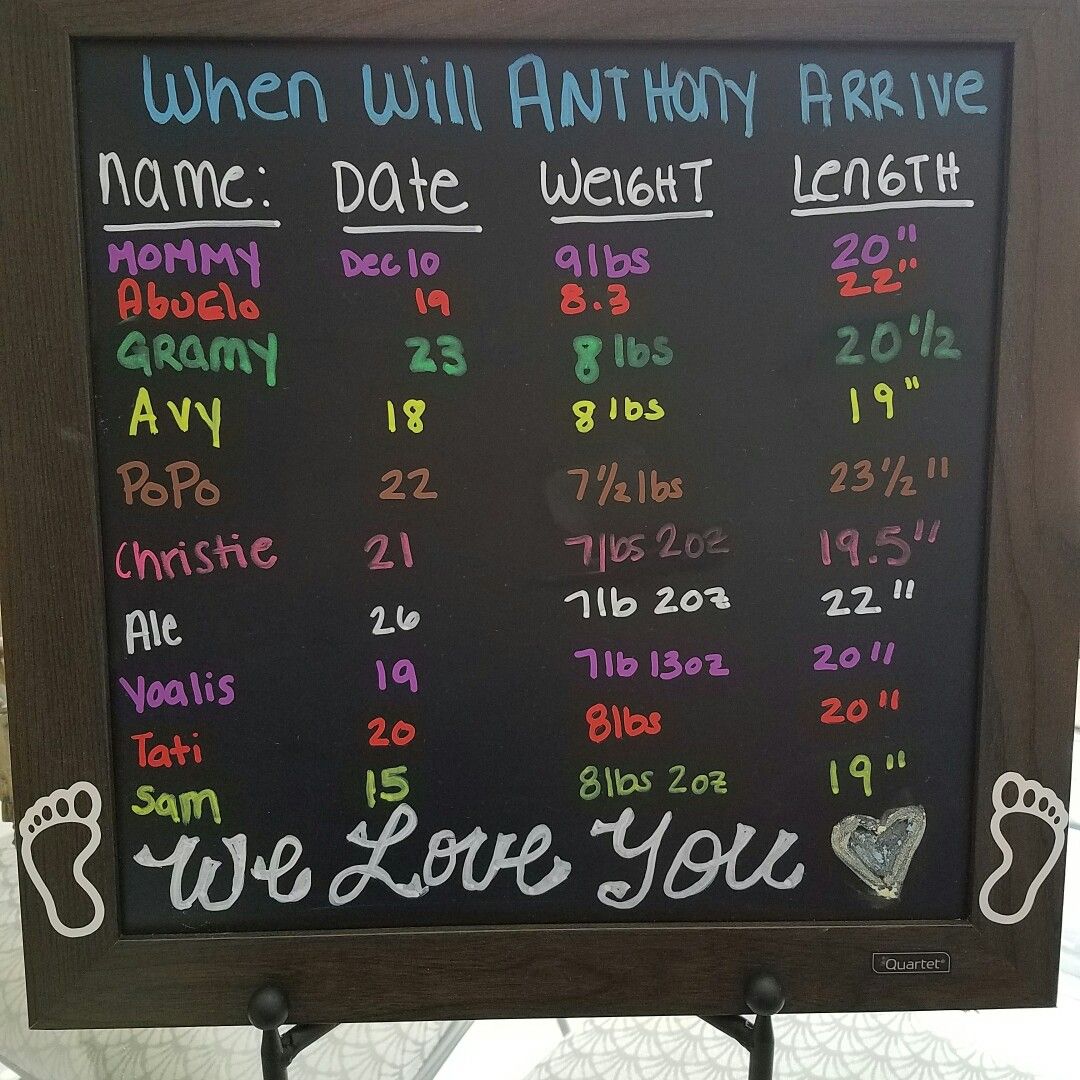 When Will ANTHONY ARRIVE
name: Date WEIGHT LENGTH
MOMMY Dec 10 9lbs 20"
Abuelo 19 8.3 22"
GRamy 23 8 lbs 20 1/2
Avy 18 8 lbs 19"
PoPo 22 7 1/2 lbs 23 1/2"
Christie 21 7lbs 2oz 19.5"
Ale 26 7lb 2oz 22"
Yoalis 19 7lb 13oz 20"
Tati 20 8lbs 20"
Sam 15 8lbs 2oz 19"
We Love You
Quartet